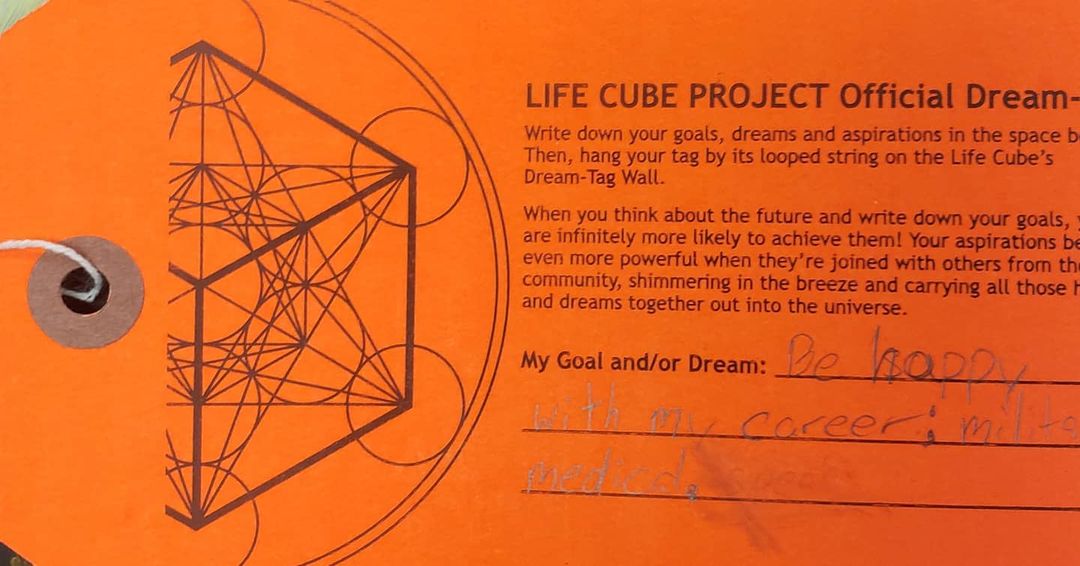 LIFE CUBE PROJECT Official Dream-
Write down your goals, dreams and aspirations in the space b
Then, hang your tag by its looped string on the Life Cube's
Dream-Tag Wall.
When you think about the future and write down your goals, y
are infinitely more likely to achieve them! Your aspirations be
even more powerful when they're joined with others from the
community, shimmering in the breeze and carrying all those h
and dreams together out into the universe.
My Goal and/or Dream: Be happy
with my career; milita
medical,